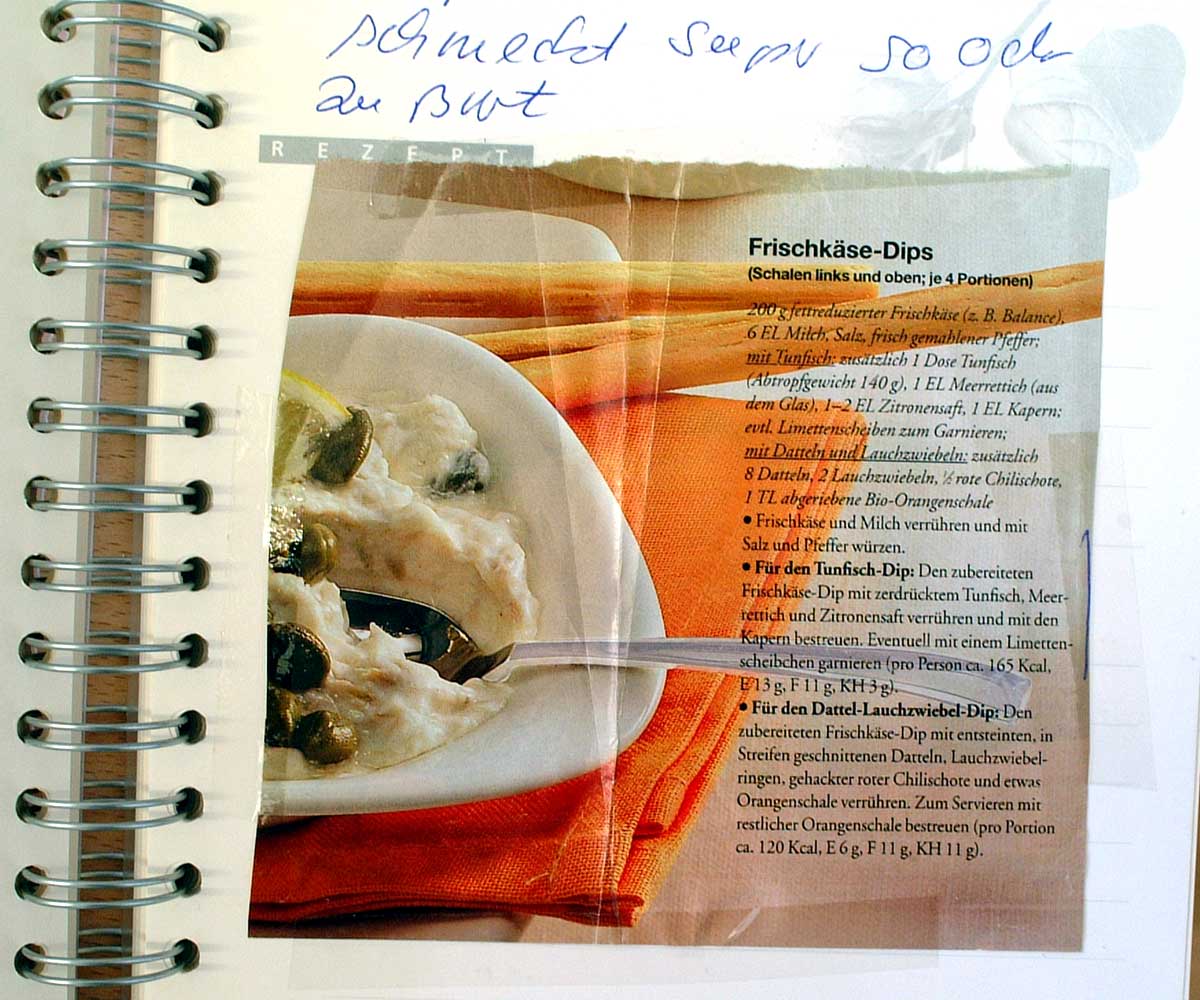 schmeckt super so oder
zu Brot
REZEPT
Frischkäse-Dips
(Schalen links und oben; je 4 Portionen)
200 g fettreduzierter Frischkäse (z. B. Balance),
6 EL Milch, Salz, frisch gemahlener Pfeffer;
mit Tunfisch: zusätzlich 1 Dose Tunfisch
(Abtropfgewicht 140 g), 1 EL Meerrettich (aus
dem Glas), 1–2 EL Zitronensaft, 1 EL Kapern;
evtl. Limettenscheiben zum Garnieren;
mit Datteln und Lauchzwiebeln: zusätzlich
8 Datteln, 2 Lauchzwiebeln, ½ rote Chilischote,
1 TL abgeriebene Bio-Orangenschale
• Frischkäse und Milch verrühren und mit
Salz und Pfeffer würzen.
• Für den Tunfisch-Dip: Den zubereiteten
Frischkäse-Dip mit zerdrücktem Tunfisch, Meer-
rettich und Zitronensaft verrühren und mit den
Kapern bestreuen. Eventuell mit einem Limetten-
scheibchen garnieren (pro Person ca. 165 Kcal,
E 13 g, F 11 g, KH 3 g).
• Für den Dattel-Lauchzwiebel-Dip: Den
zubereiteten Frischkäse-Dip mit entsteinten, in
Streifen geschnittenen Datteln, Lauchzwiebel-
ringen, gehackter roter Chilischote und etwas
Orangenschale verrühren. Zum Servieren mit
restlicher Orangenschale bestreuen (pro Portion
ca. 120 Kcal, E 6 g, F 11 g, KH 11 g).